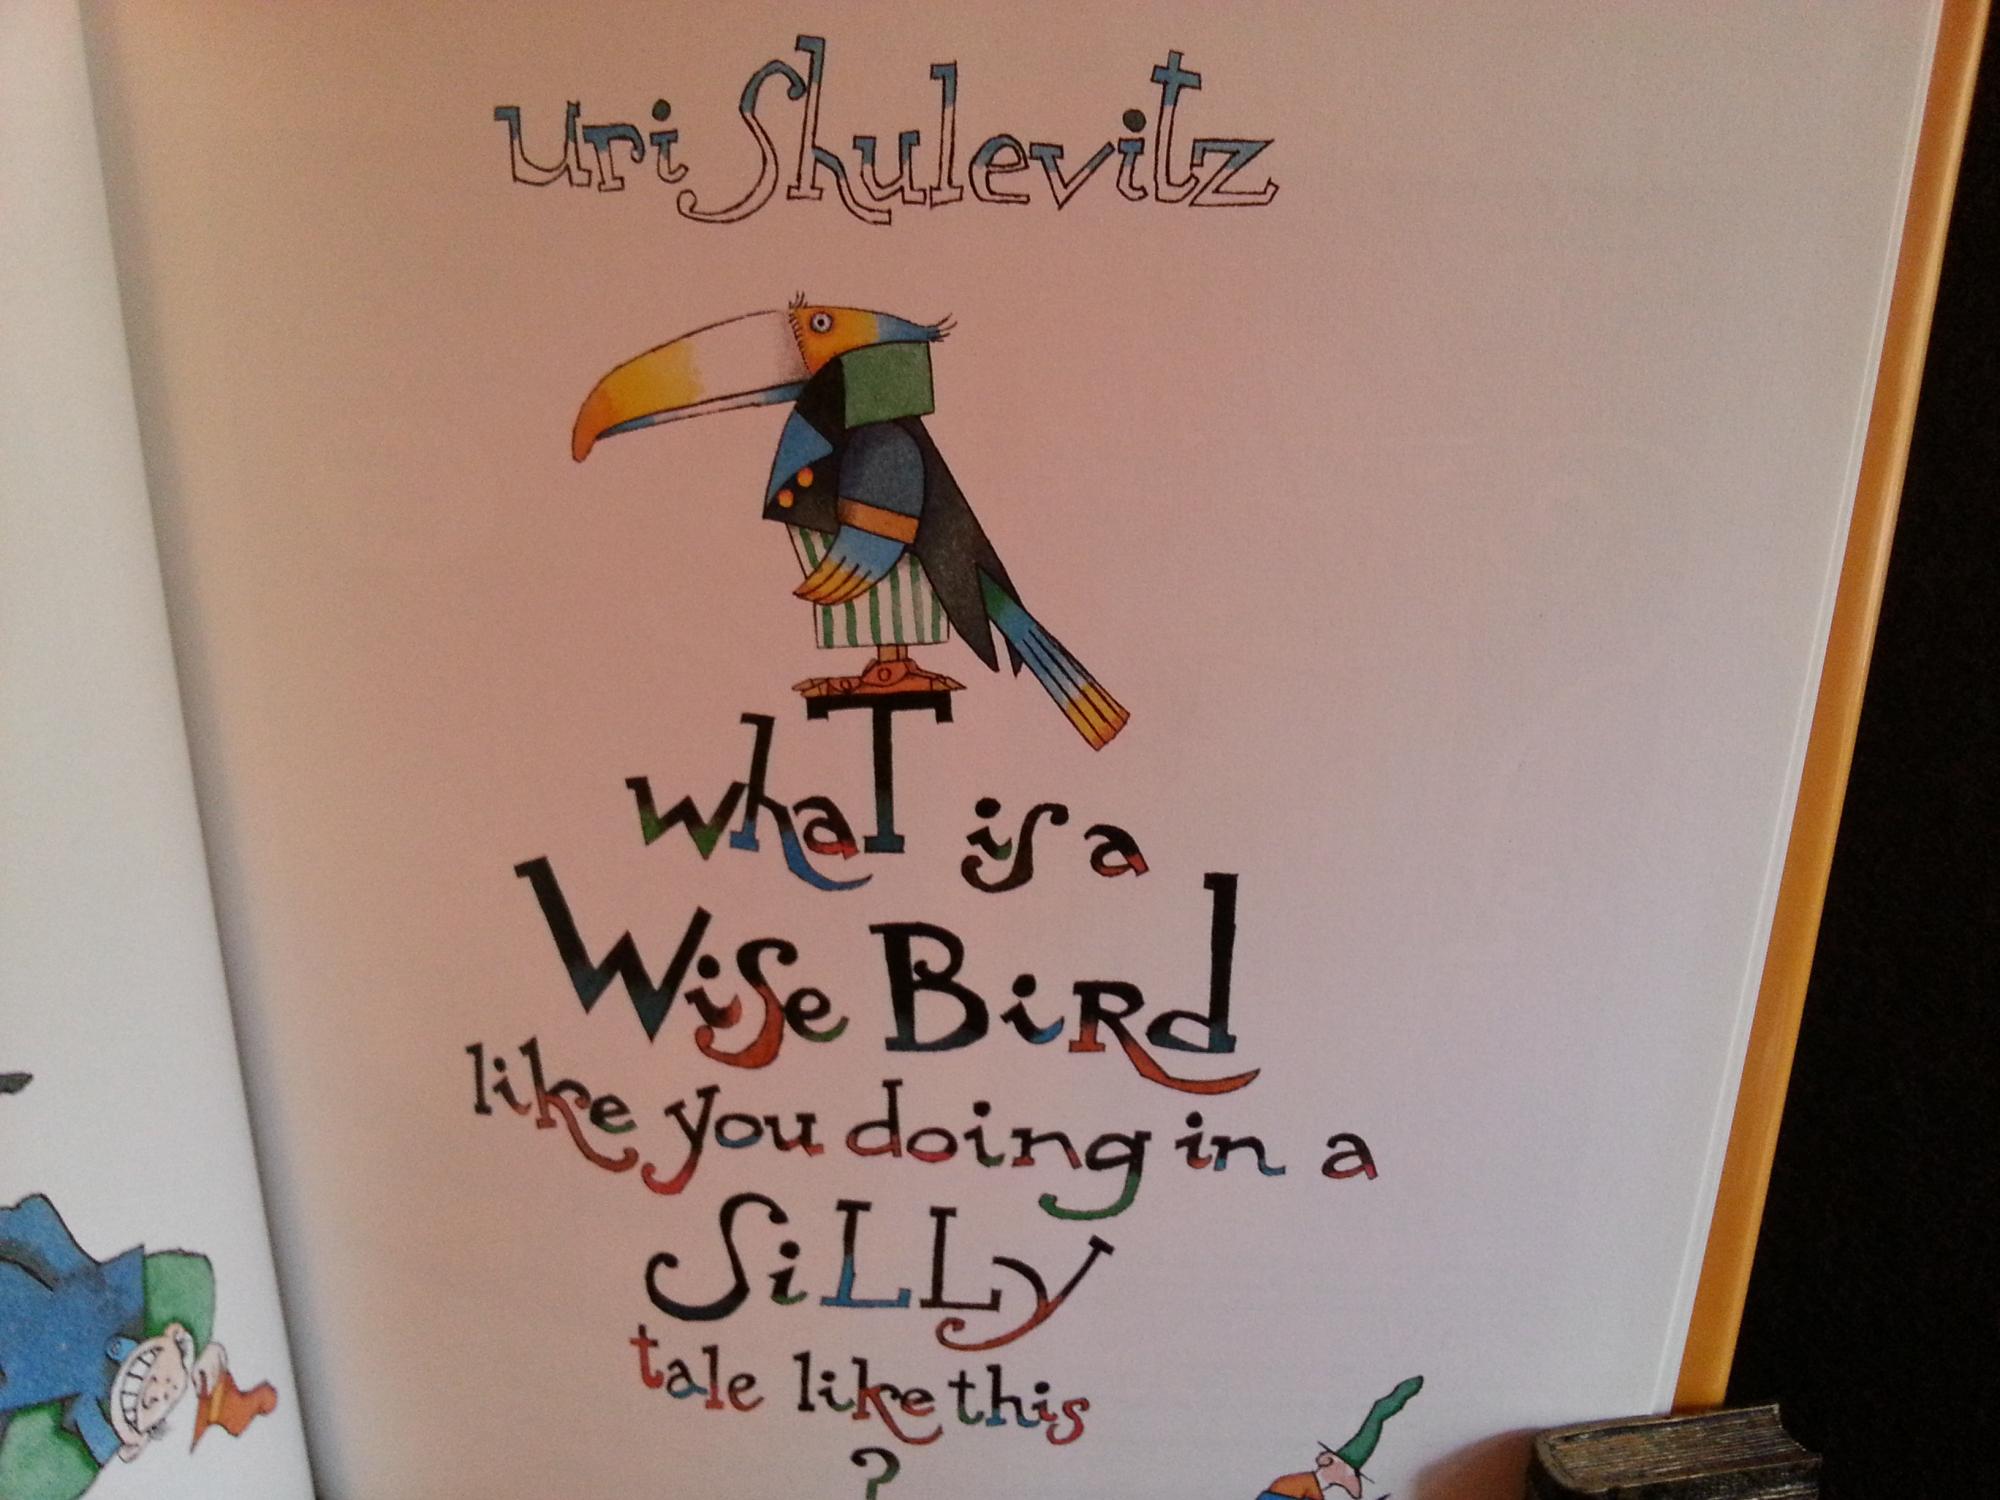 uri Shulevitz
whaT is a
Wise BiRd
like you doing in a
SiLLy
tale like this
?